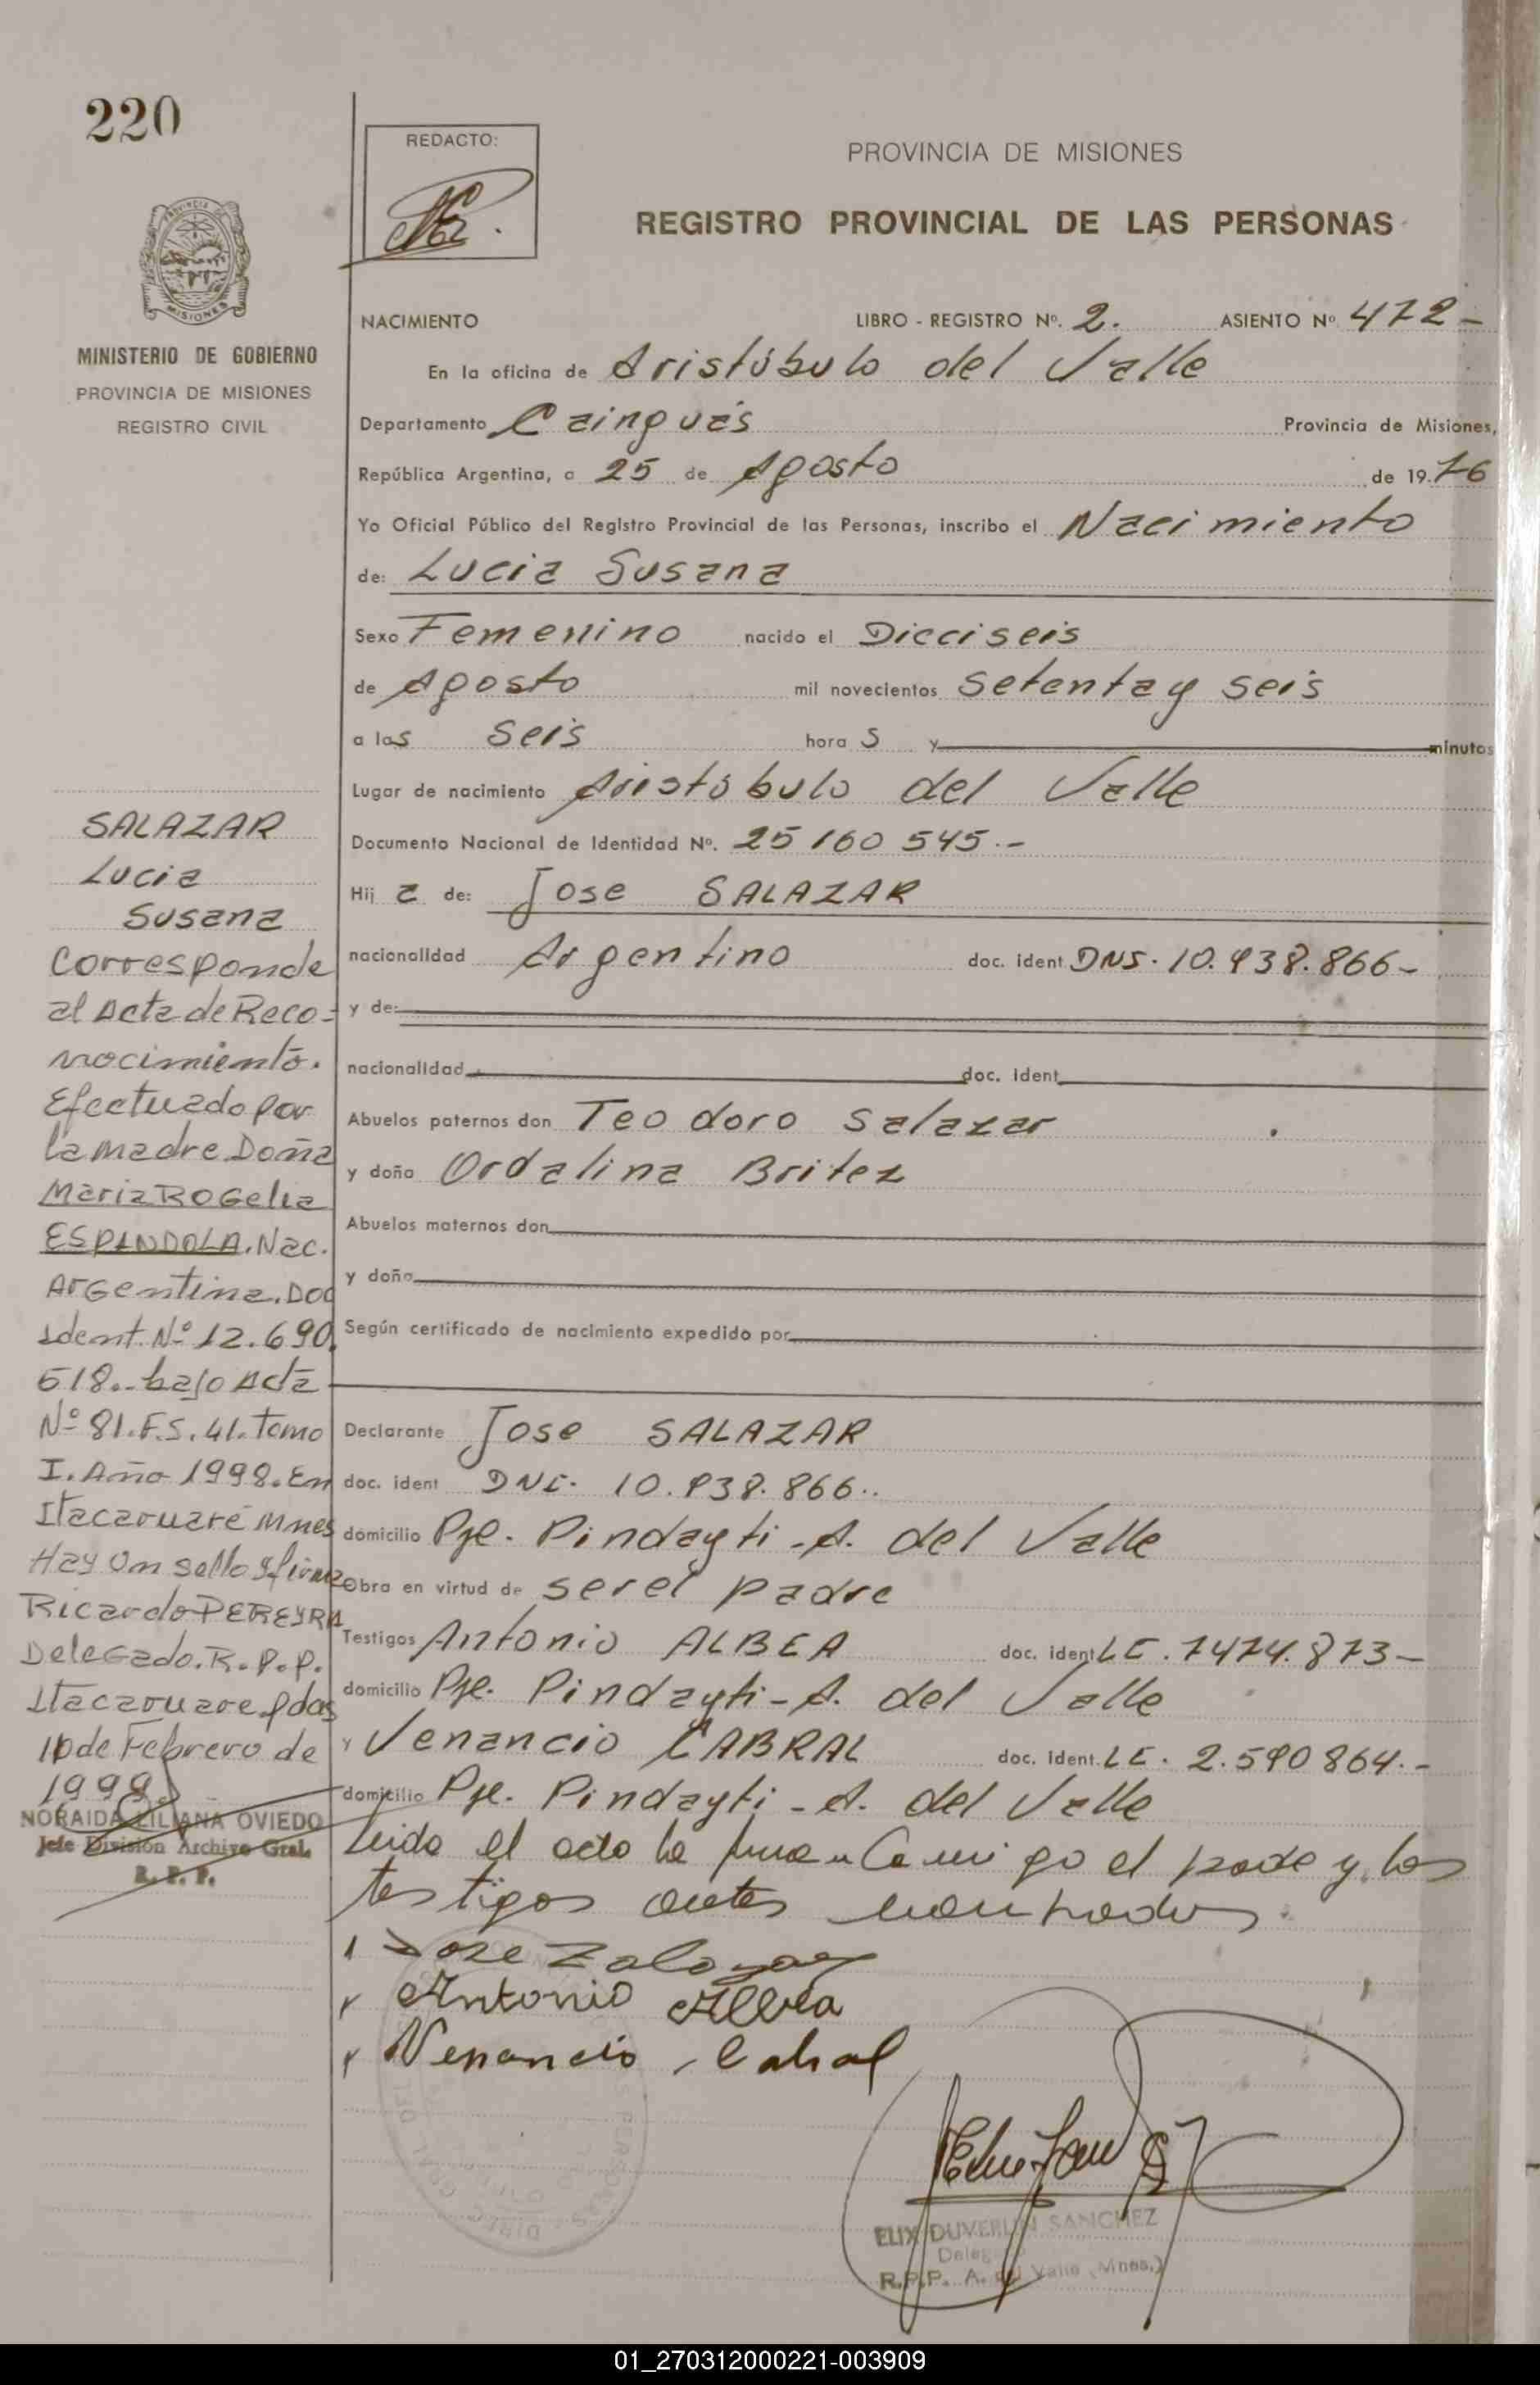 220
REDACTO:
PROVINCIA DE MISIONES
REGISTRO PROVINCIAL DE LAS PERSONAS
MISIONES
MINISTERIO DE GOBIERNO
PROVINCIA DE MISIONES
REGISTRO CIVIL
NACIMIENTO LIBRO - REGISTRO Nº. 2. ASIENTO Nº 472-
En la oficina de Aristóbulo del Valle
Departamento Cainguás Provincia de Misiones,
República Argentina, a 25 de Agosto de 1976
Yo Oficial Público del Registro Provincial de las Personas, inscribo el Nacimiento
de: Lucia Susana
Sexo Femenino nacido el Dieciseis
de Agosto mil novecientos Setenta y seis
a las seis hora s y minutos
Lugar de nacimiento Aristóbulo del Valle
Documento Nacional de Identidad Nº. 25 160 545.-
Hij a de: Jose SALAZAR
nacionalidad Argentino doc. ident DNI. 10.938.866-
y de:
nacionalidad doc. ident
Abuelos paternos don Teodoro Salazar
y doña Ordalina Britez
Abuelos maternos don
y doña
Según certificado de nacimiento expedido por
Declarante Jose SALAZAR
doc. ident DNI. 10.938.866..
domicilio Pje. Pindayti - A. del Valle
Obra en virtud de ser el padre
Testigos Antonio ALBEA doc. ident LE. 7474.873-
domicilio Pje. Pindayti - A. del Valle
y Venancio CABRAL doc. ident. LE. 2.590864.-
domicilio Pje. Pindayti - A. del Valle
Leida el acta la firman Conmigo el padre y los
testigos antes nombrados.
Jose Zalazar
Antonio Albea
Venancio Cabral
SALAZAR
Lucia
Susana
Corresponde
al Acta de Reco-
nocimiento.
Efectuado por
la madre Doña
Maria ROGelia
ESPINDOLA. Nac.
ArGentina. Doc
Ident. Nº 12.690.
618.- bajo Acta
Nº 81. F.S. 41. Tomo
I. Año 1998. En
Itacaruaré Mnes
Hay Un sello y firma
Ricardo PEREYRA
DeleGado. R.P.P.
Itacaruare Pdas
10 de Febrero de
1999.
NORAIDA LILIANA OVIEDO
Jefe División Archivo Gral.
R. P. P.
ELIX DUVERLIN SANCHEZ
R.P.P. A. del Valle (Mnes.)
01_270312000221-003909